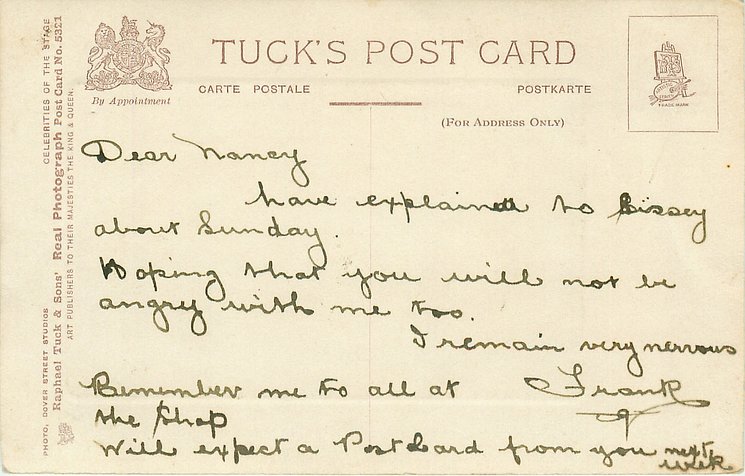 TUCK'S POST CARD
By Appointment
CARTE POSTALE
POSTKARTE
(FOR ADDRESS ONLY)
TRADE MARK
PHOTO, DOVER STREET STUDIOS
CELEBRITIES OF THE STAGE
Raphael Tuck & Sons' Real Photograph Post Card No. 5321
ART PUBLISHERS TO THEIR MAJESTIES THE KING & QUEEN.
Dear Nancy
have explained to Cissey
about Sunday.
Hoping that you will not be
angry with me too.
I remain very nervous
Frank
Remember me to all at
the Shop
Will expect a Post Card from you next week